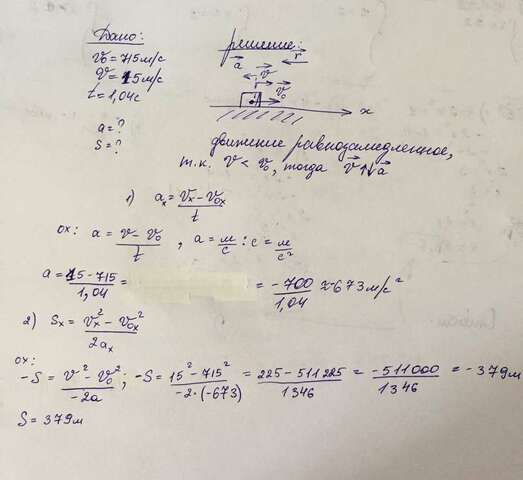 Дано:
v₀ = 715 м/с
v = 15 м/с
t = 1,04 с
a = ?
S = ?
решение:
a⃗ v⃗ r⃗
v⃗₀
x
движение равнозамедленное,
т.к. v < v₀, тогда v⃗↑↓a⃗
1) aₓ = (vₓ - v₀ₓ)/t
ox: a = (v - v₀)/t, a = м/с : с = м/с²
a = (15 - 715)/1,04 = = -700/1,04 ≈ -673 м/с²
2) Sₓ = (vₓ² - v₀ₓ²)/2aₓ
ox:
-S = (v² - v₀²)/-2a; -S = (15² - 715²)/-2·(-673) = (225 - 511225)/1346 = -511000/1346 = -379м
S = 379м